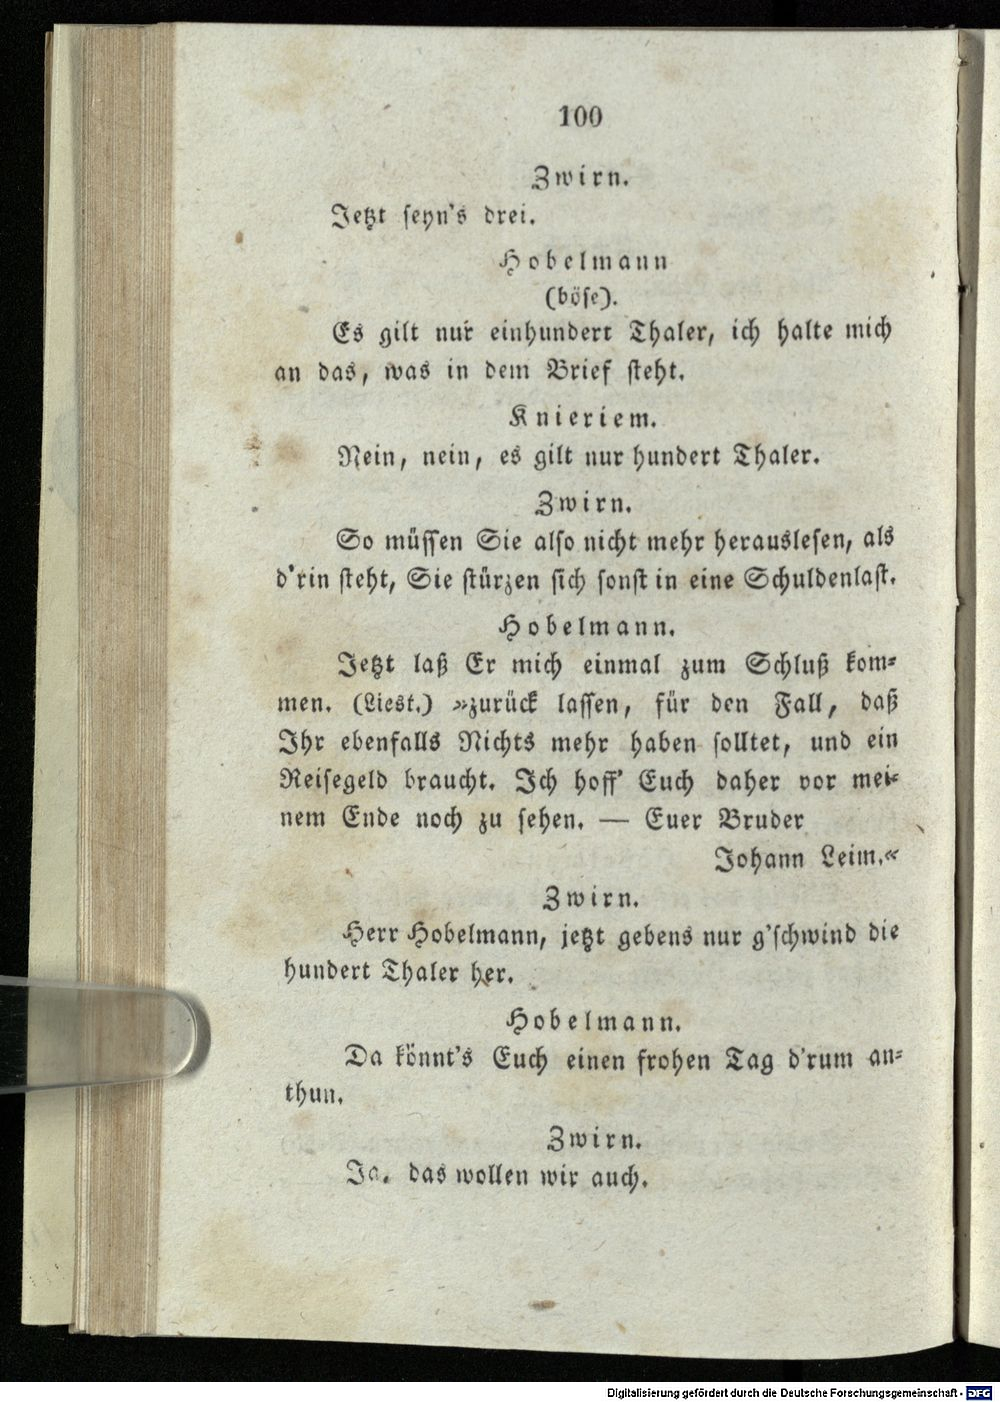 100
Zwirn.
Jetzt seyn's drei.
Hobelmann
(böse).
Es gilt nur einhundert Thaler, ich halte mich
an das, was in dem Brief steht.
Knieriem.
Nein, nein, es gilt nur hundert Thaler.
Zwirn.
So müssen Sie also nicht mehr herauslesen, als
d'rin steht, Sie stürzen sich sonst in eine Schuldenlast.
Hobelmann.
Jetzt laß Er mich einmal zum Schluß kom-
men. (Liest.) »zurück lassen, für den Fall, daß
Ihr ebenfalls Nichts mehr haben solltet, und ein
Reisegeld braucht. Ich hoff' Euch daher vor mei-
nem Ende noch zu sehen. — Euer Bruder
Johann Leim.«
Zwirn.
Herr Hobelmann, jetzt gebens nur g'schwind die
hundert Thaler her.
Hobelmann.
Da könnt's Euch einen frohen Tag d'rum an-
thun.
Zwirn.
Ja, das wollen wir auch.
Digitalisierung gefördert durch die Deutsche Forschungsgemeinschaft - DFG